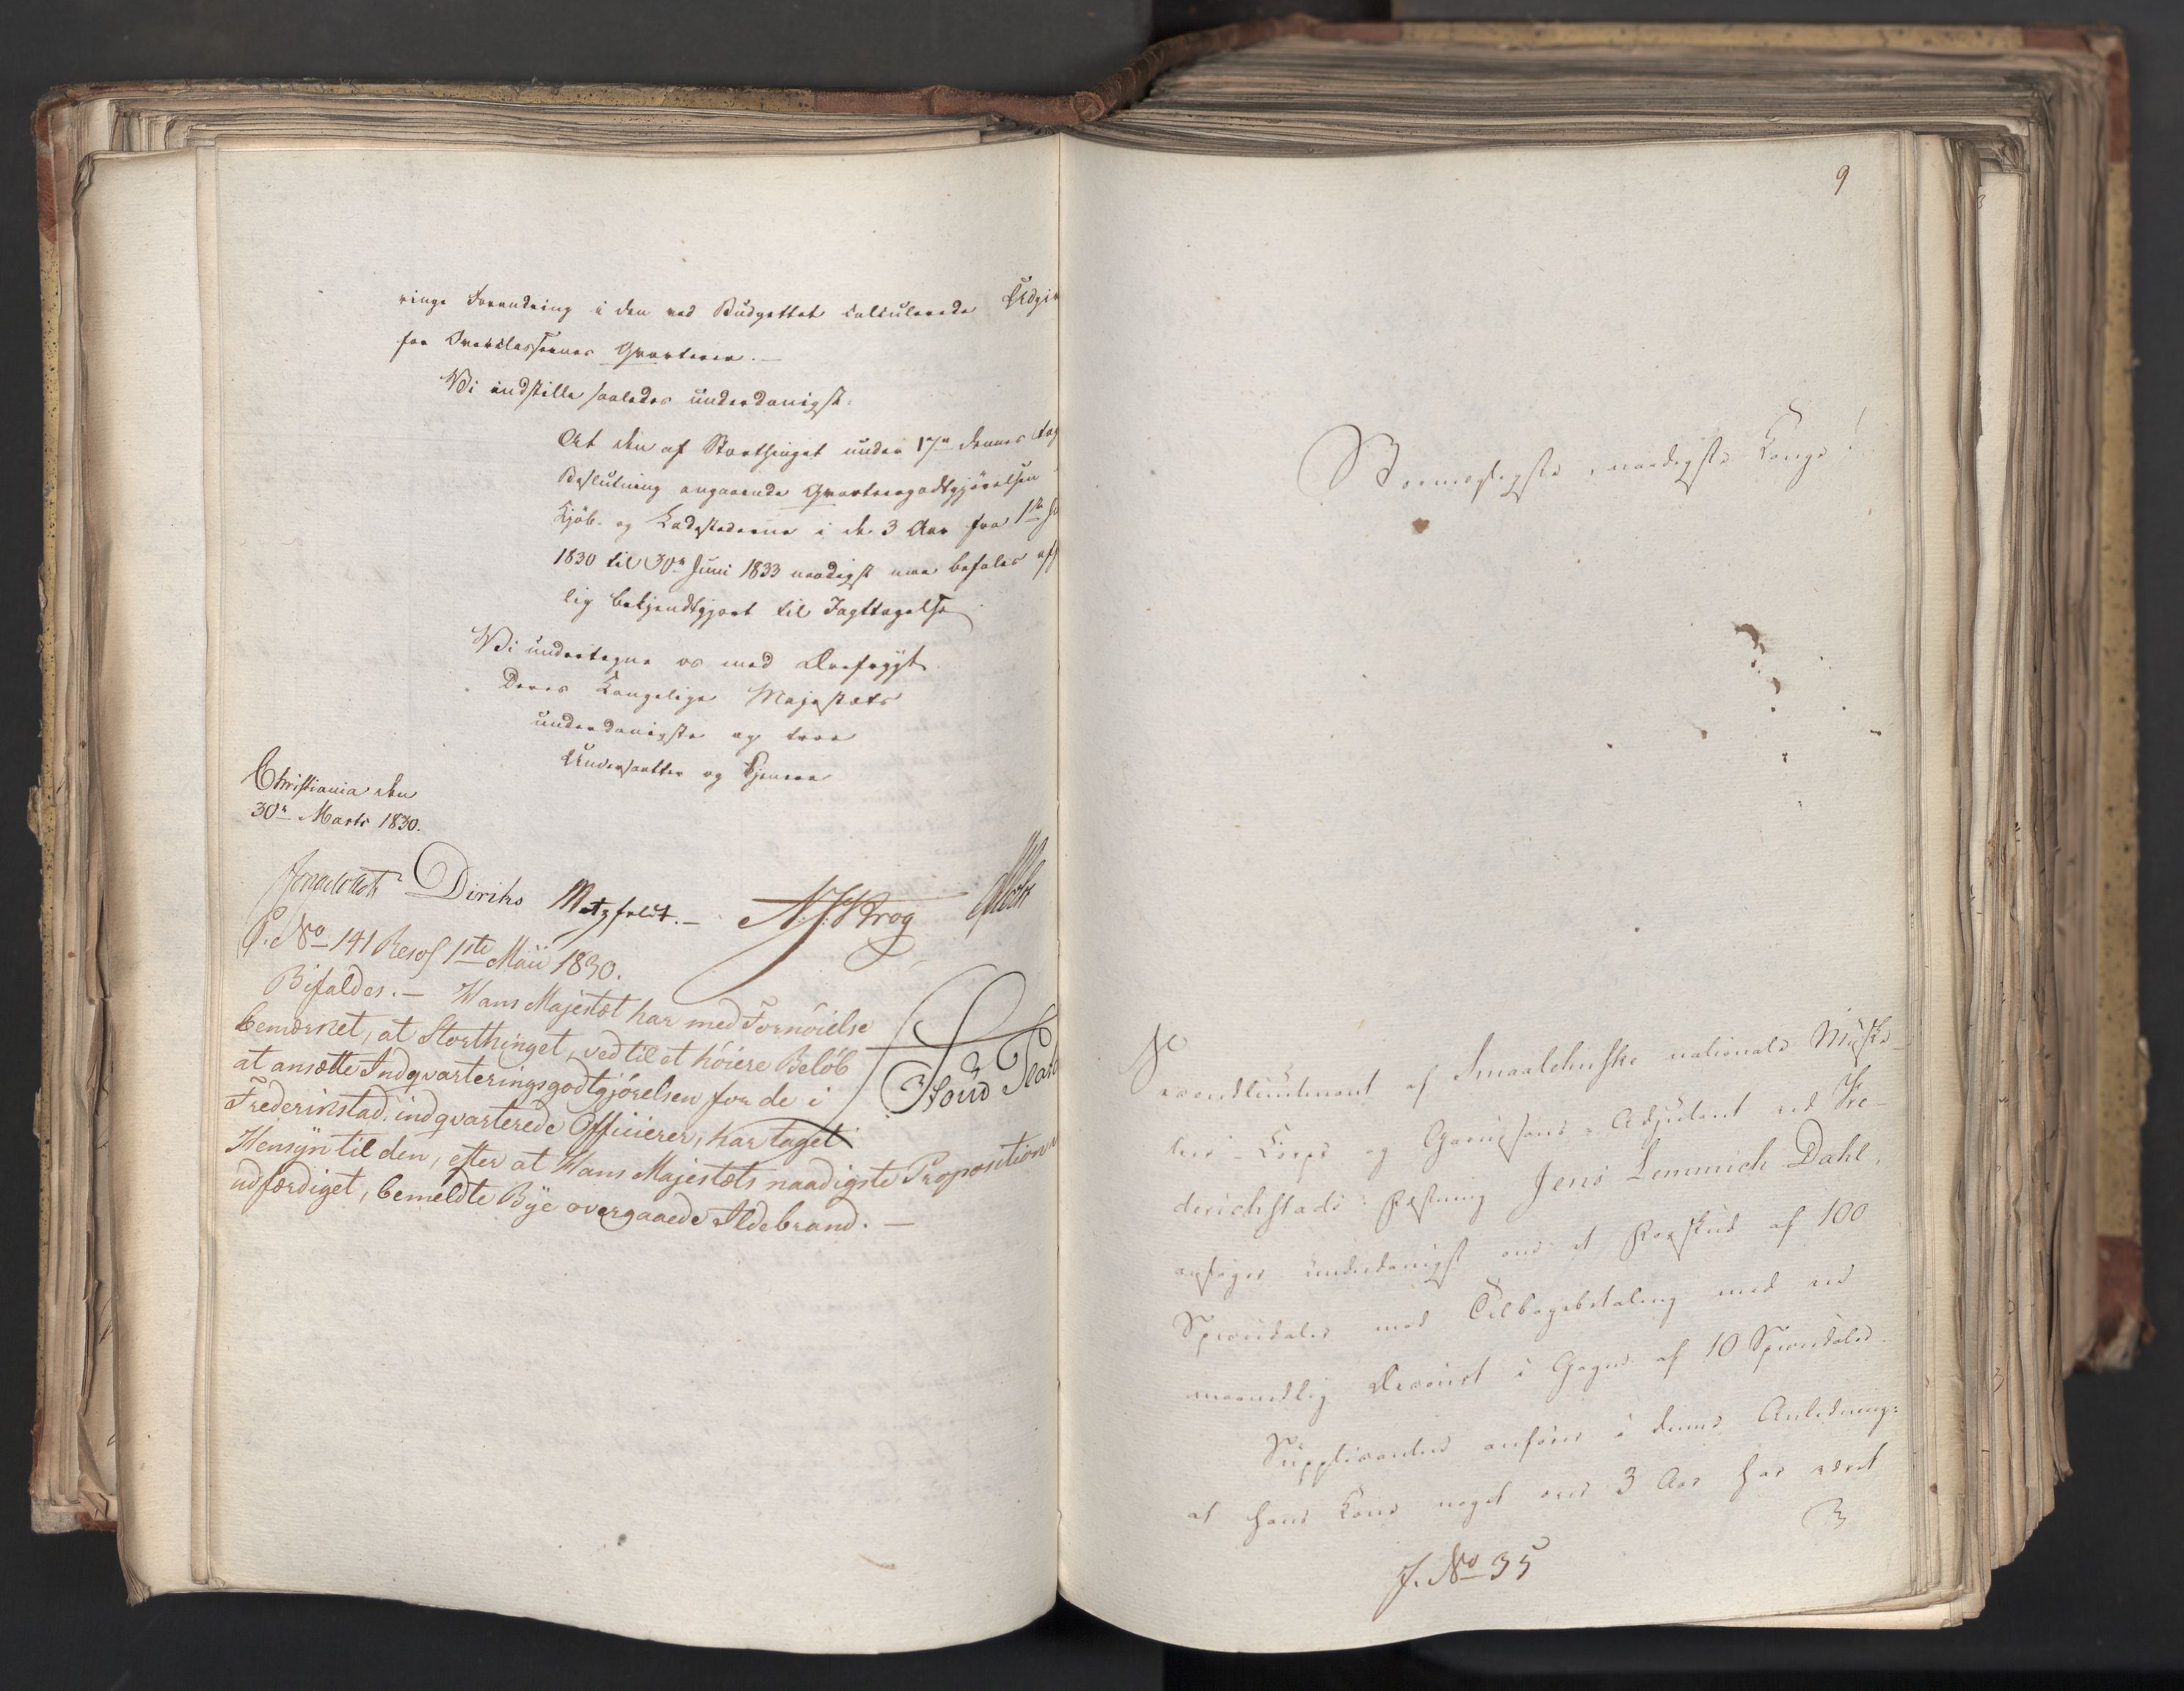 ringe Forandring i den ved Budgettet calculerede Udgiv
for Overclassernes Qvarterer. —
Vi indstille saaledes underdanigst:
At den af Storthinget under 17de dennes tag
Beslutning angaaende Qvarteergodtgjørelsen
Kjøb- og Ladestederne i de 3 Aar fra 1ste Ju
1830 til 30te Juni 1833 naadigst maa befales off
lig bekjendtgjort til Iagttagelse.
Vi undertegne os med Ærefrygt
Deres Kongelige Majestæts
underdanigste og troe
Undersaatter og Tjenere
Christiania den
30te Marts 1830.
Diriks Motzfeldt. — N. J. Krog
P. No 141 Resol 1ste Maii 1830.
Bifaldes. — Hans Majestæt har med Fornöielse
bemærket, at Storthinget, ved til et höiere Belöb
at ansætte Indqvarteringsgodtgjörelsen for de i
Frederikstad indqvarterede Officierer, har taget
Hensyn til den, efter at Hans Majestæts naadigste Proposition var
udfærdiget, bemeldte Bye overgaaede Ildebrand. —
9
Stormægtigste, naadigste Konge!
Secondlieutenant af Smaalehnske nationale Muske-
teer-Corps og Garnisons-Adjutant ved Fre-
derichstads Fæstning Jens Lemmich Dahl,
ansøger underdanigst om et Forskud af 100
Speciedaler mod Tilbagebetaling med en
maanedlig Decourt i Gagen af 10 Speciedaler.
Supplicanten anfører i denne Anledning:
at hans Kone noget over 3 Aar har været
J. No 35